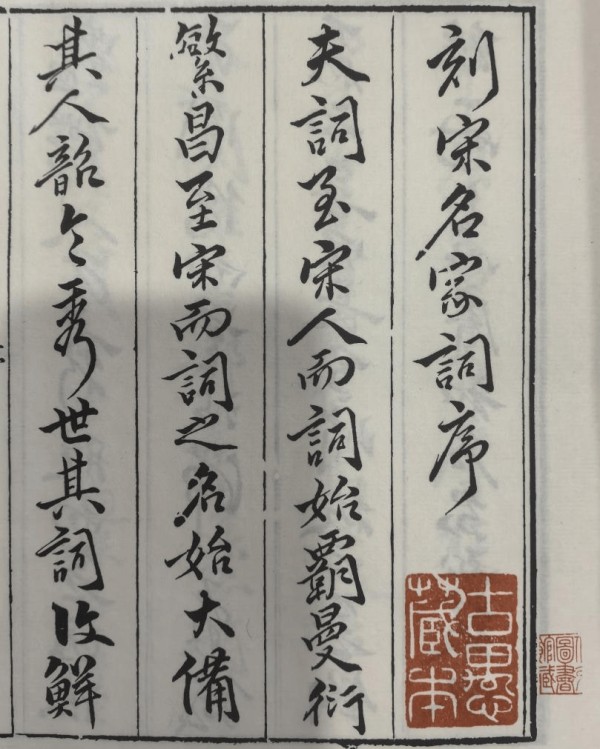 刻宋名家詞序
夫詞至宋人而詞始霸曼衍
繁昌至宋而詞之名始大備
其人韶令秀世其詞復鮮
古愚藏本